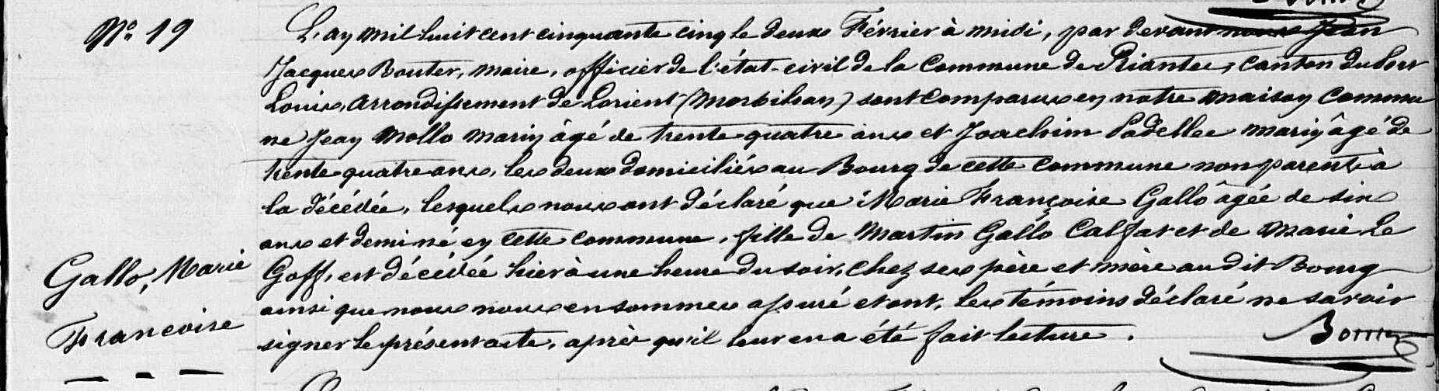 Nº 19
L'an mil huit cent cinquante cinq le deux Février à midi, par devant nous Jean
Jacques Bouter, maire, officier de l'état-civil de la commune de Riantec, canton du Port
Louis arrondissement de Lorient (Morbihan) sont comparus en notre maison commu
ne Jean Mollo marin âgé de trente quatre ans et Joachim Padellec marin âgé de
trente quatre ans, les deux domiciliés au Bourg de cette commune non parents à
la décédée, lesquels nous ont déclaré que Marie Françoise Gallo âgée de six
ans et demi né en cette commune, fille de Martin Gallo Calfat et de Marie Le
Goff, est décédée hier à une heure du soir, chez ses père et mère au dit Bourg
ainsi que nous nous en sommes assuré et ont, les témoins déclaré ne savoir
signer le présent acte, après qu'il leur en a été fait lecture.
Gallo, Marie
Francoise